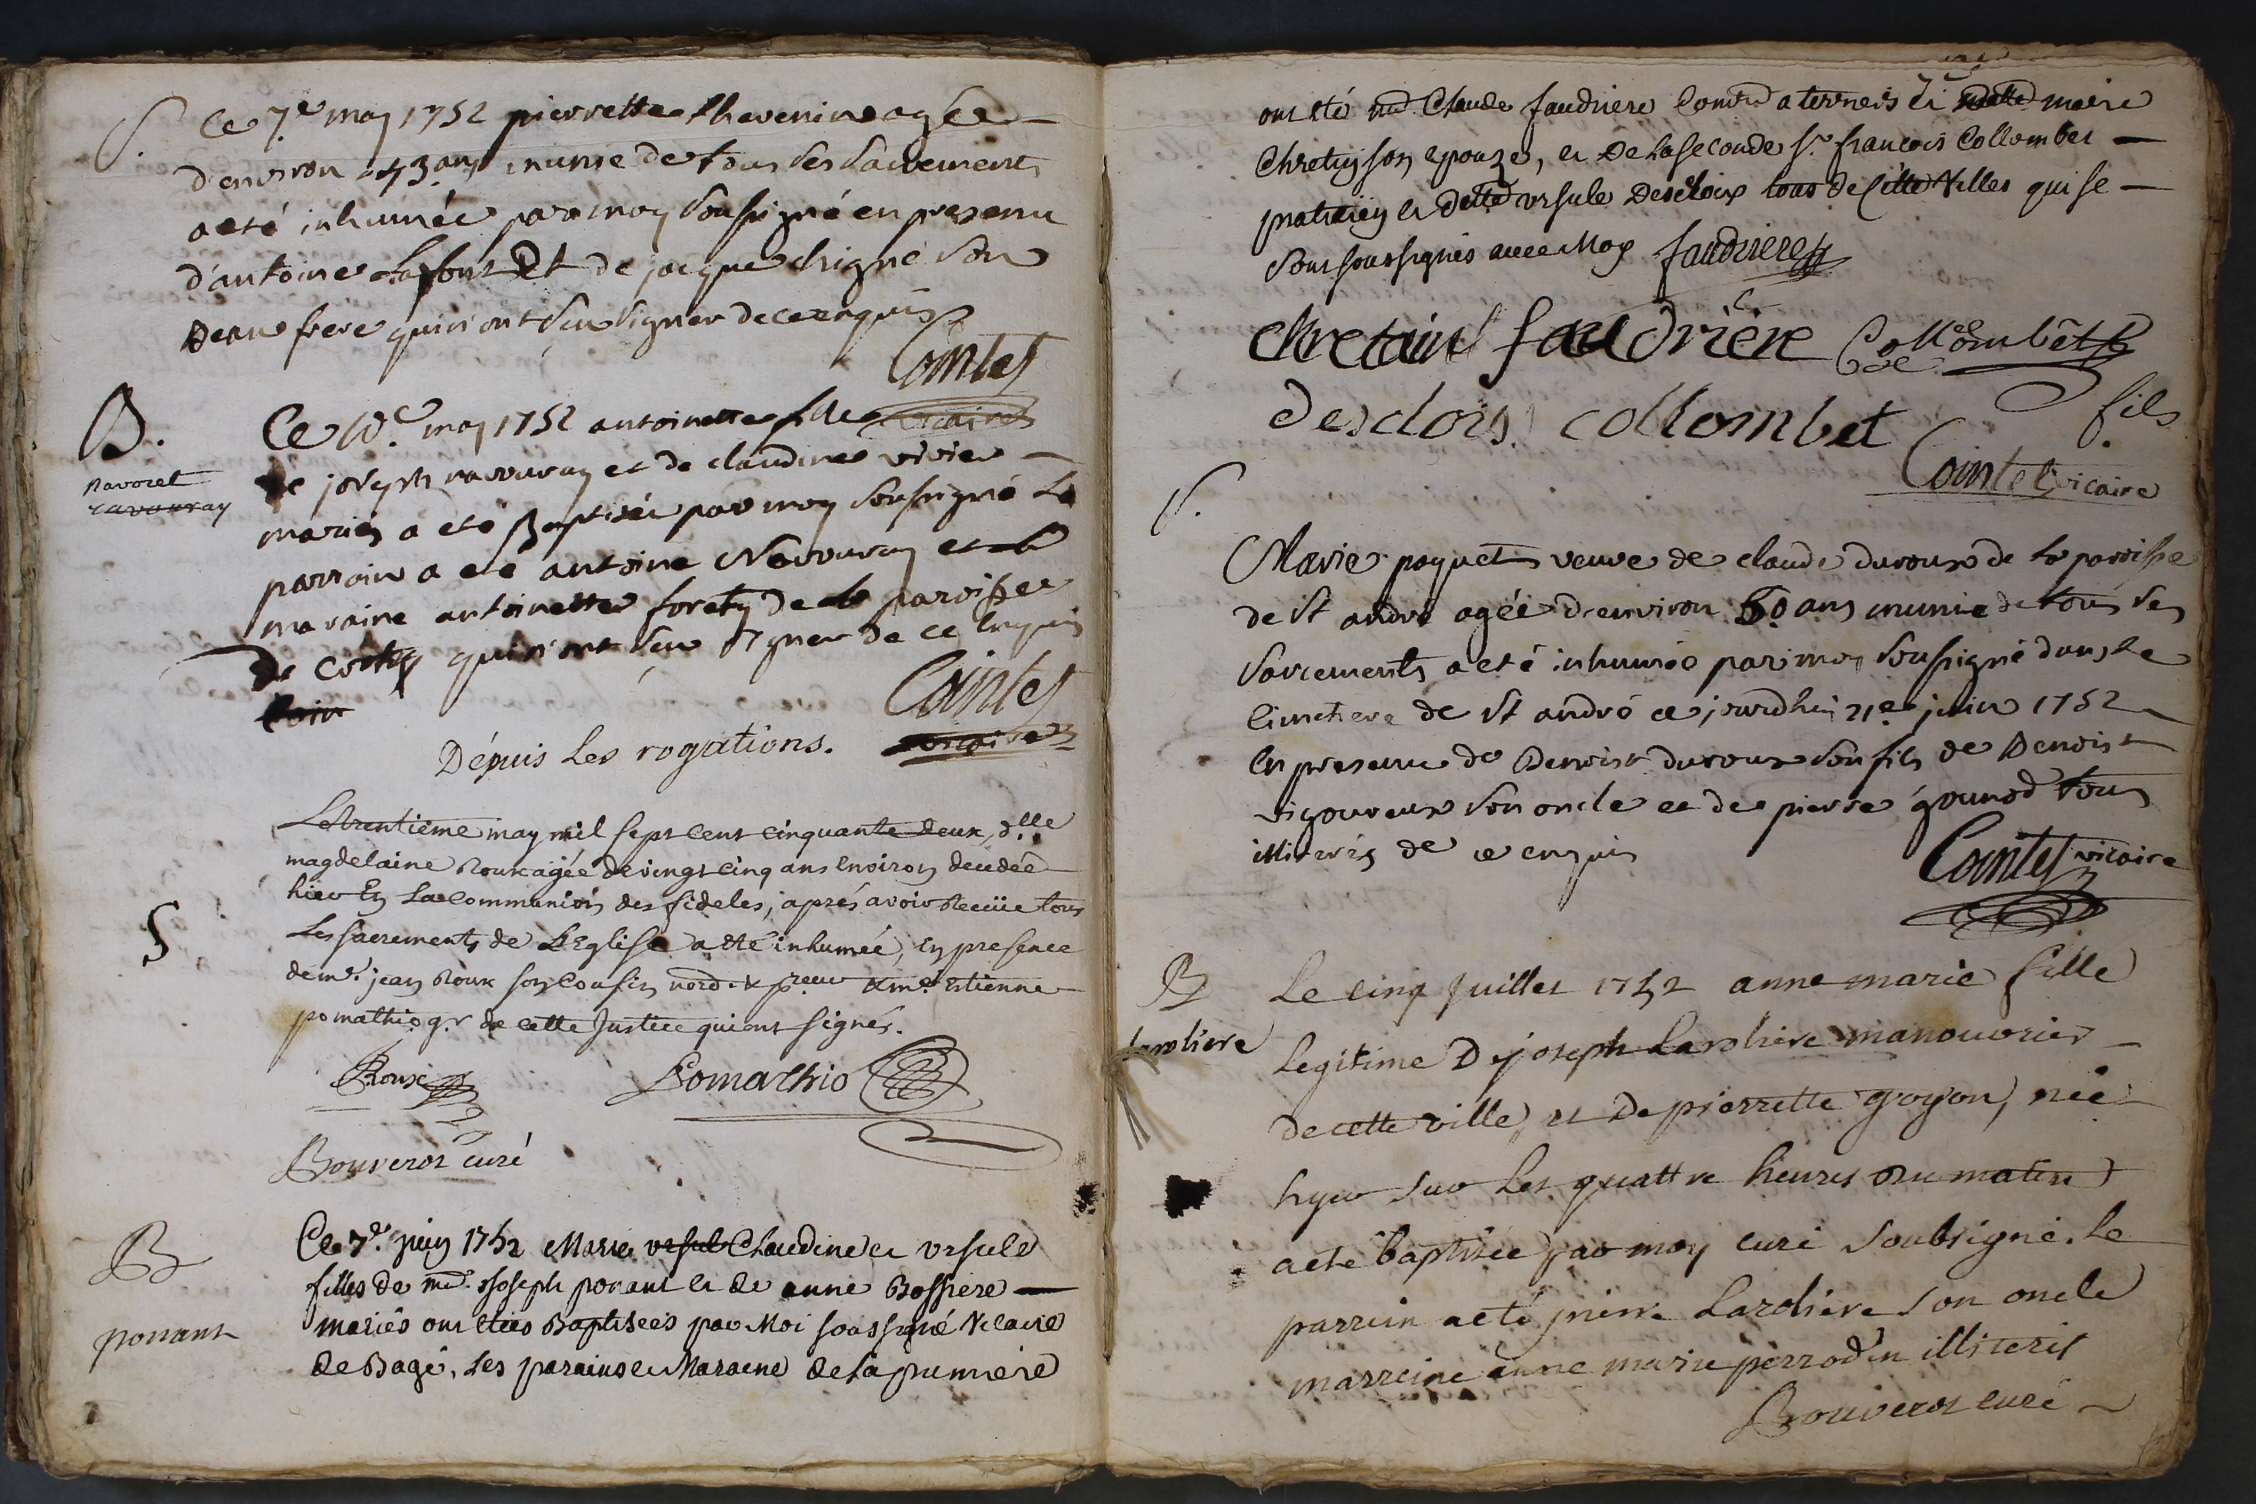 S.
Ce 7e may 1752 pierrette thevenin agée
d'environ 43 ans munie de tous les sacrements
a eté inhumée par moy soussigné en presence
d'antoine Lafont Et de jacque chigné son
beau frere qui n'ont sçu signer de ce enquis
Cointet
vicaire
B.
navoret
ravouray
Ce may 1752 antoinette fille
de joseph navouray et de claudine vivier
mariés a eté Baptisée par moy soussigné Le
parrain a eté antoine Navouray et la
maraine antoinette forety de la paroisse
de qui n'ont sçu signer de ce enquis
Cointet
vicaire
Dépuis les rogations.
S
Le trentieme may mil sept cent cinquante deux, dlle
magdelaine Roux agée de vingt cinq ans environ decedée
hier En La communion des fideles, aprés avoir Reçüe tous
Les sacrements de L'Eglise a eté inhumée, en presence
de mr. jean Roux son cousin nore. & preur & me. Estienne
pomathio gr de cette Justice qui ont signés.
Roux
Pomathio
Bouverot curé
B
ponant
Ce 7e. juin 1752 Marie ursul Claudine et ursule
filles de md. Joseph ponant et de anne Bossiere
mariés ont etées Baptisées par Moi soussigné Vicaire
de Bagé, les parains et Maraine de la premiere
ont eté md Claude faudriere et mere
Chretin son epouze, et de la seconde sr. francois Collombet
praticien et delle ursule Descloix tous de cette Villes qui se
sont soussignés avec Moy faudriere
chretain faudrière Collombet
desclois collombet fils
Cointet vicaire
S.
Marie paquet veuve de claude duroux de la paroisse
de St andré agée d'environ 60 ans munie de tous ses
sacrements a eté inhumée par moy soussigné dans le
cimetiere de St andré ce jourdhui 21e juin 1752
en presence de Benoist duroux son fils de Benoist
vigoureux son oncle et de pierre gounod tous
illiterés de ce enquis
Cointet vicaire
B
Larolière
Le cinq Juillet 1752 anne marie fille
Legitime De joseph Laroliere manouvrier
de cette ville, et De pierrette goyon, née
hyer sur les quattre heures du matin
a eté baptisée par moy curé soubsigné. le
parrein a eté pierre Laroliere son oncle
marreine anne marie perrodin illiterés
Bouverot curé